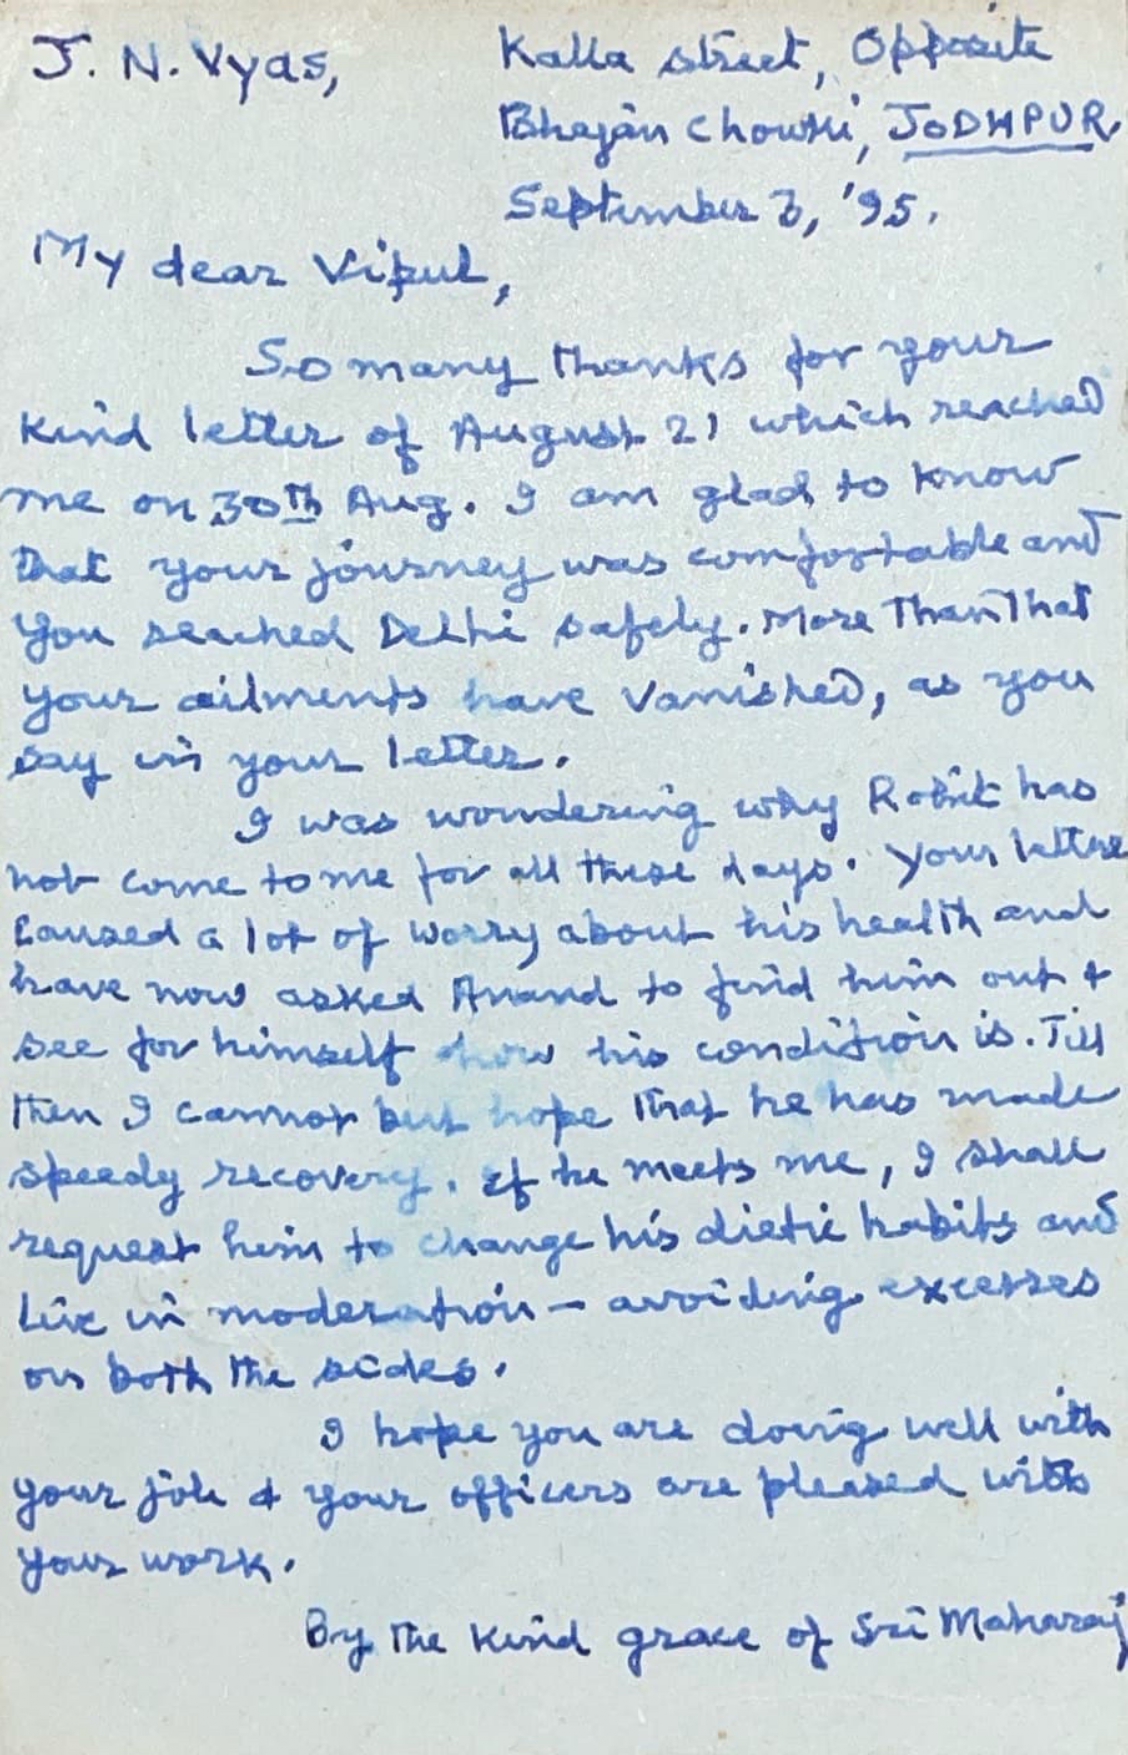 J. N. Vyas,
Kalla street, Opposite
Bhajan Chowki, JODHPUR.
September 3, '95.
My dear Vipul,
So many thanks for your
kind letter of August 21 which reached
me on 30th Aug. I am glad to know
that your journey was comfortable and
you reached Delhi safely. More than that
your ailments have vanished, as you
say in your letter.
I was wondering why Rohit has
not come to me for all these days. Your letter
caused a lot of worry about his health and
have now asked Anand to find him out &
see for himself how his condition is. Till
then I cannot but hope that he has made
speedy recovery. If he meets me, I shall
request him to change his dietic habits and
live in moderation – avoiding excesses
on both the sides.
I hope you are doing well with
your job & your officers are pleased with
your work.
By the kind grace of Sri Maharaj